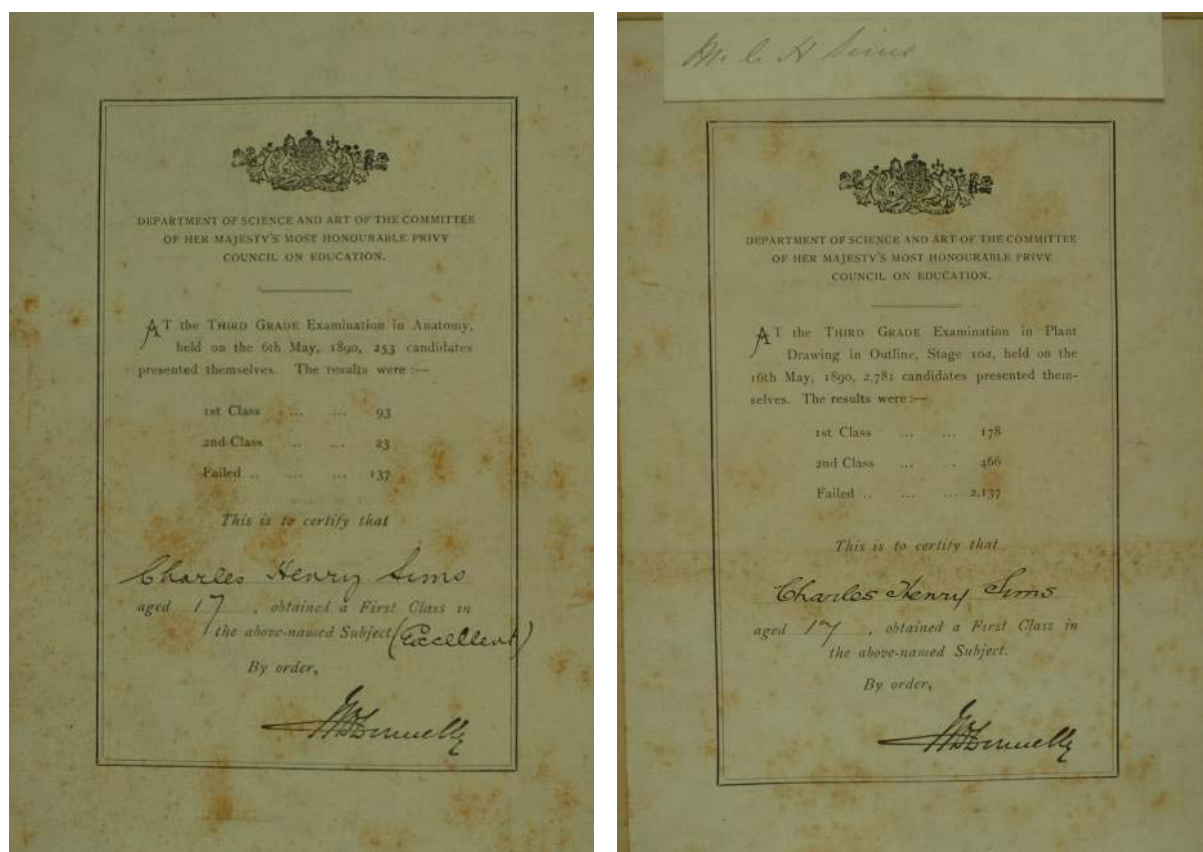 DEPARTMENT OF SCIENCE AND ART OF THE COMMITTEE
OF HER MAJESTY'S MOST HONOURABLE PRIVY
COUNCIL ON EDUCATION.
AT the THIRD GRADE Examination in Anatomy,
held on the 6th May, 1890, 253 candidates
presented themselves. The results were :—
1st Class ... ... 93
2nd Class ... ... 23
Failed .. ... ... 137
This is to certify that
Charles Henry Sims
aged 17, obtained a First Class in
the above-named Subject (Excellent)
By order,
Mr C H Sims
DEPARTMENT OF SCIENCE AND ART OF THE COMMITTEE
OF HER MAJESTY'S MOST HONOURABLE PRIVY
COUNCIL ON EDUCATION.
AT the THIRD GRADE Examination in Plant
Drawing in Outline, Stage 10a, held on the
16th May, 1890, 2,781 candidates presented them-
selves. The results were :—
1st Class ... ... 178
2nd Class ... . 466
Failed .. ... ... 2,137
This is to certify that
Charles Henry Sims
aged 17, obtained a First Class in
the above-named Subject.
By order,